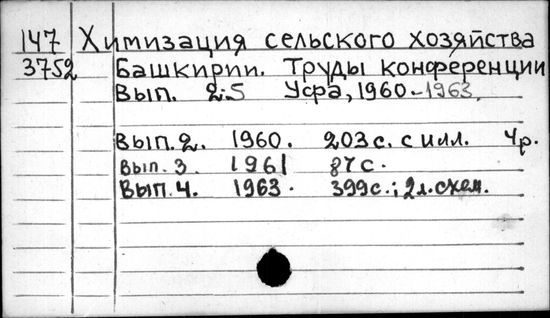 147 Химизация сельского хозяйства
3752 Башкирии. Труды конференции
Вып. 2-5 Уфа, 1960-1963.
Вып. 2. 1960. 203 с. с илл. Чр.
Вып. 3 1961 87 с.
Вып. 4. 1963. 399 с.; 2 л. схем.